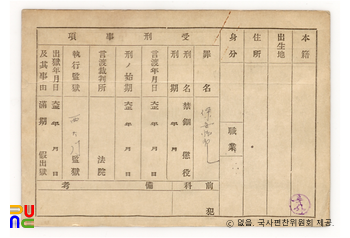 本籍
出生地
住所
身分
職業
受刑事項
罪名
保安法
刑名 禁錮 懲役
刑期
言渡年月日 大正 年 月 日
刑ノ始期 大正 年 月 日
言渡裁判所 法院
執行監獄 西大門 監獄
出獄年月日 大正 年 月 日
及其事由 滿期 假出獄
前科 犯
備考
© 없음. 국사편찬위원회 제공.